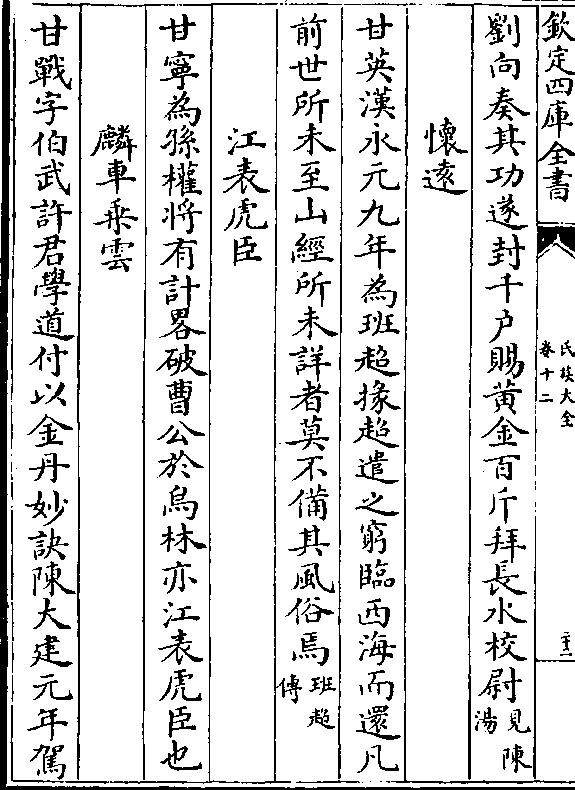 欽定四庫全書
氏族大全
卷十二
二十二
劉向奏其功遂封千户賜黄金百斤拜長水校尉見陳湯
懷遠
甘英漢永元九年為班超掾超遣之窮臨西海而還凡
前世所未至山經所未詳者莫不備其風俗焉班超傳
江表虎臣
甘寧為孫權將有計畧破曹公於烏林亦江表虎臣也
麟車乗雲
甘戰字伯武許君學道付以金丹妙訣陳大建元年駕